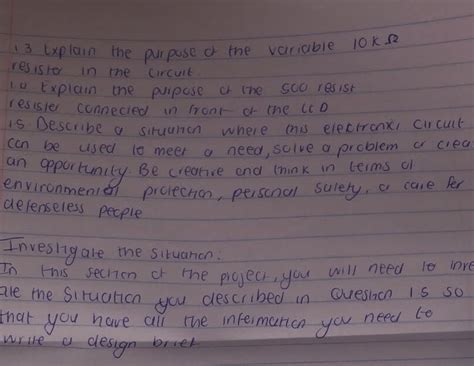 1.3 Explain the purpose of the variable 10kΩ
resister in the circuit
1.4 Explain the purpose of the 500 resist
resister connected in front of the LED
1.5 Describe a situation where this electronic circuit
can be used to meet a need, solve a problem or crea
an opportunity. Be creative and think in terms of
environmental protection, personal safety, or care for
defenseless people
Investigate the situation:
In this section of the project, you will need to inve
ate the situation you described in Question 1.5 so
that you have all the information you need to
write a design brief